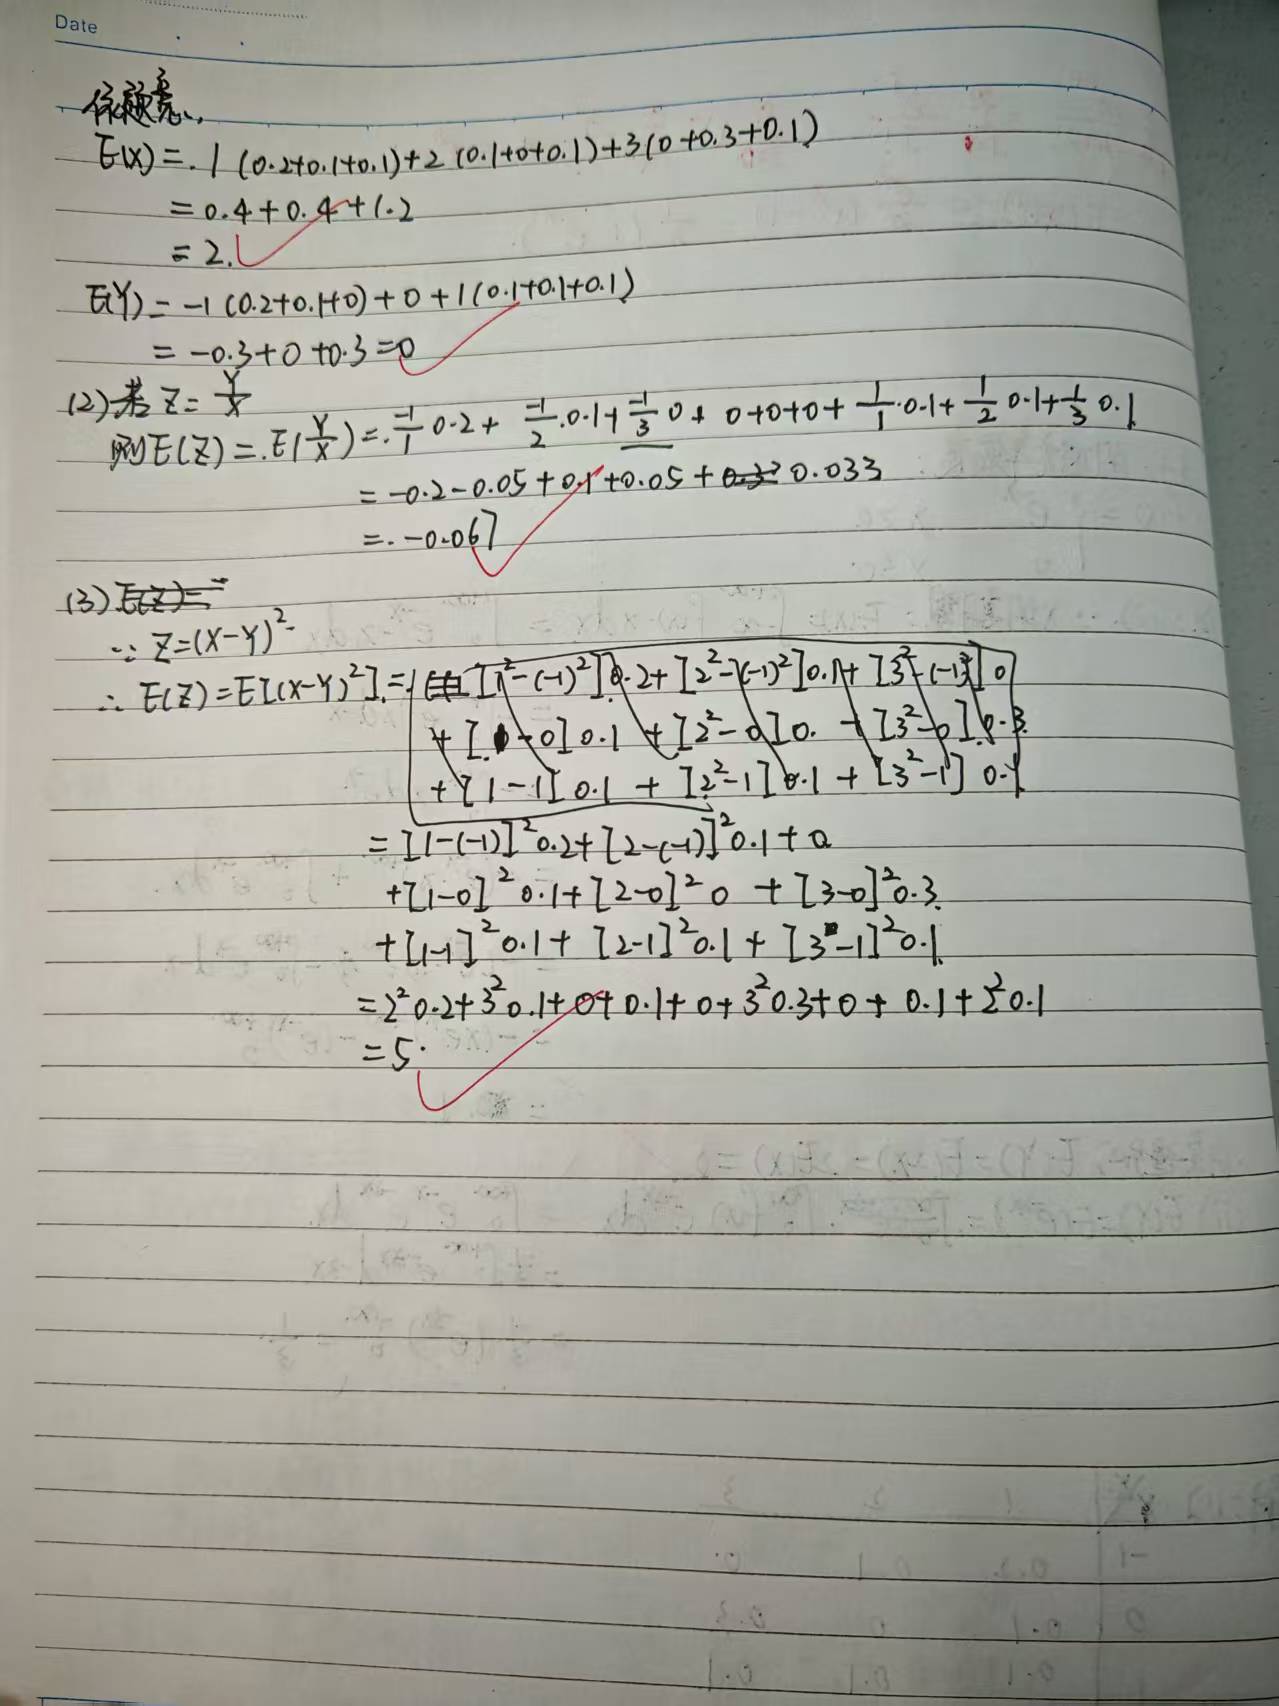 Date
依题意,
E(X)=.1(0.2+0.1+0.1)+2(0.1+0+0.1)+3(0+0.3+0.1)
=0.4+0.4+1.2
=2.
E(Y)=-1(0.2+0.1+0)+0+1(0.1+0.1+0.1)
=-0.3+0+0.3=0
(2)若Z=Y/X
则E(Z)=.E(Y/X)=.-1/1 0.2+-1/2.0.1+-1/3 0+0+0+0+1/1.0.1+1/2 0.1+1/3 0.1
=-0.2-0.05+0.1+0.05+0.033
=.-0.067
(3)E(Z)=
∵Z=(X-Y)²
∴E(Z)=E[(X-Y)²].=[1²-(-1)²]0.2+[2²-(-1)²]0.1+[3²-(-1)²]0
+[-0]0.1+[2²-0]0.+[3²-0]0.3
+[1-1]0.1+[2²-1]0.1+[3²-1]0.1
=[1-(-1)]²0.2+[2-(-1)]²0.1+0
+[1-0]²0.1+[2-0]²0+[3-0]²0.3
+[1-1]²0.1+[2-1]²0.1+[3-1]²0.1
=2²0.2+3²0.1+0+0.1+0+3²0.3+0+0.1+2²0.1
=5.